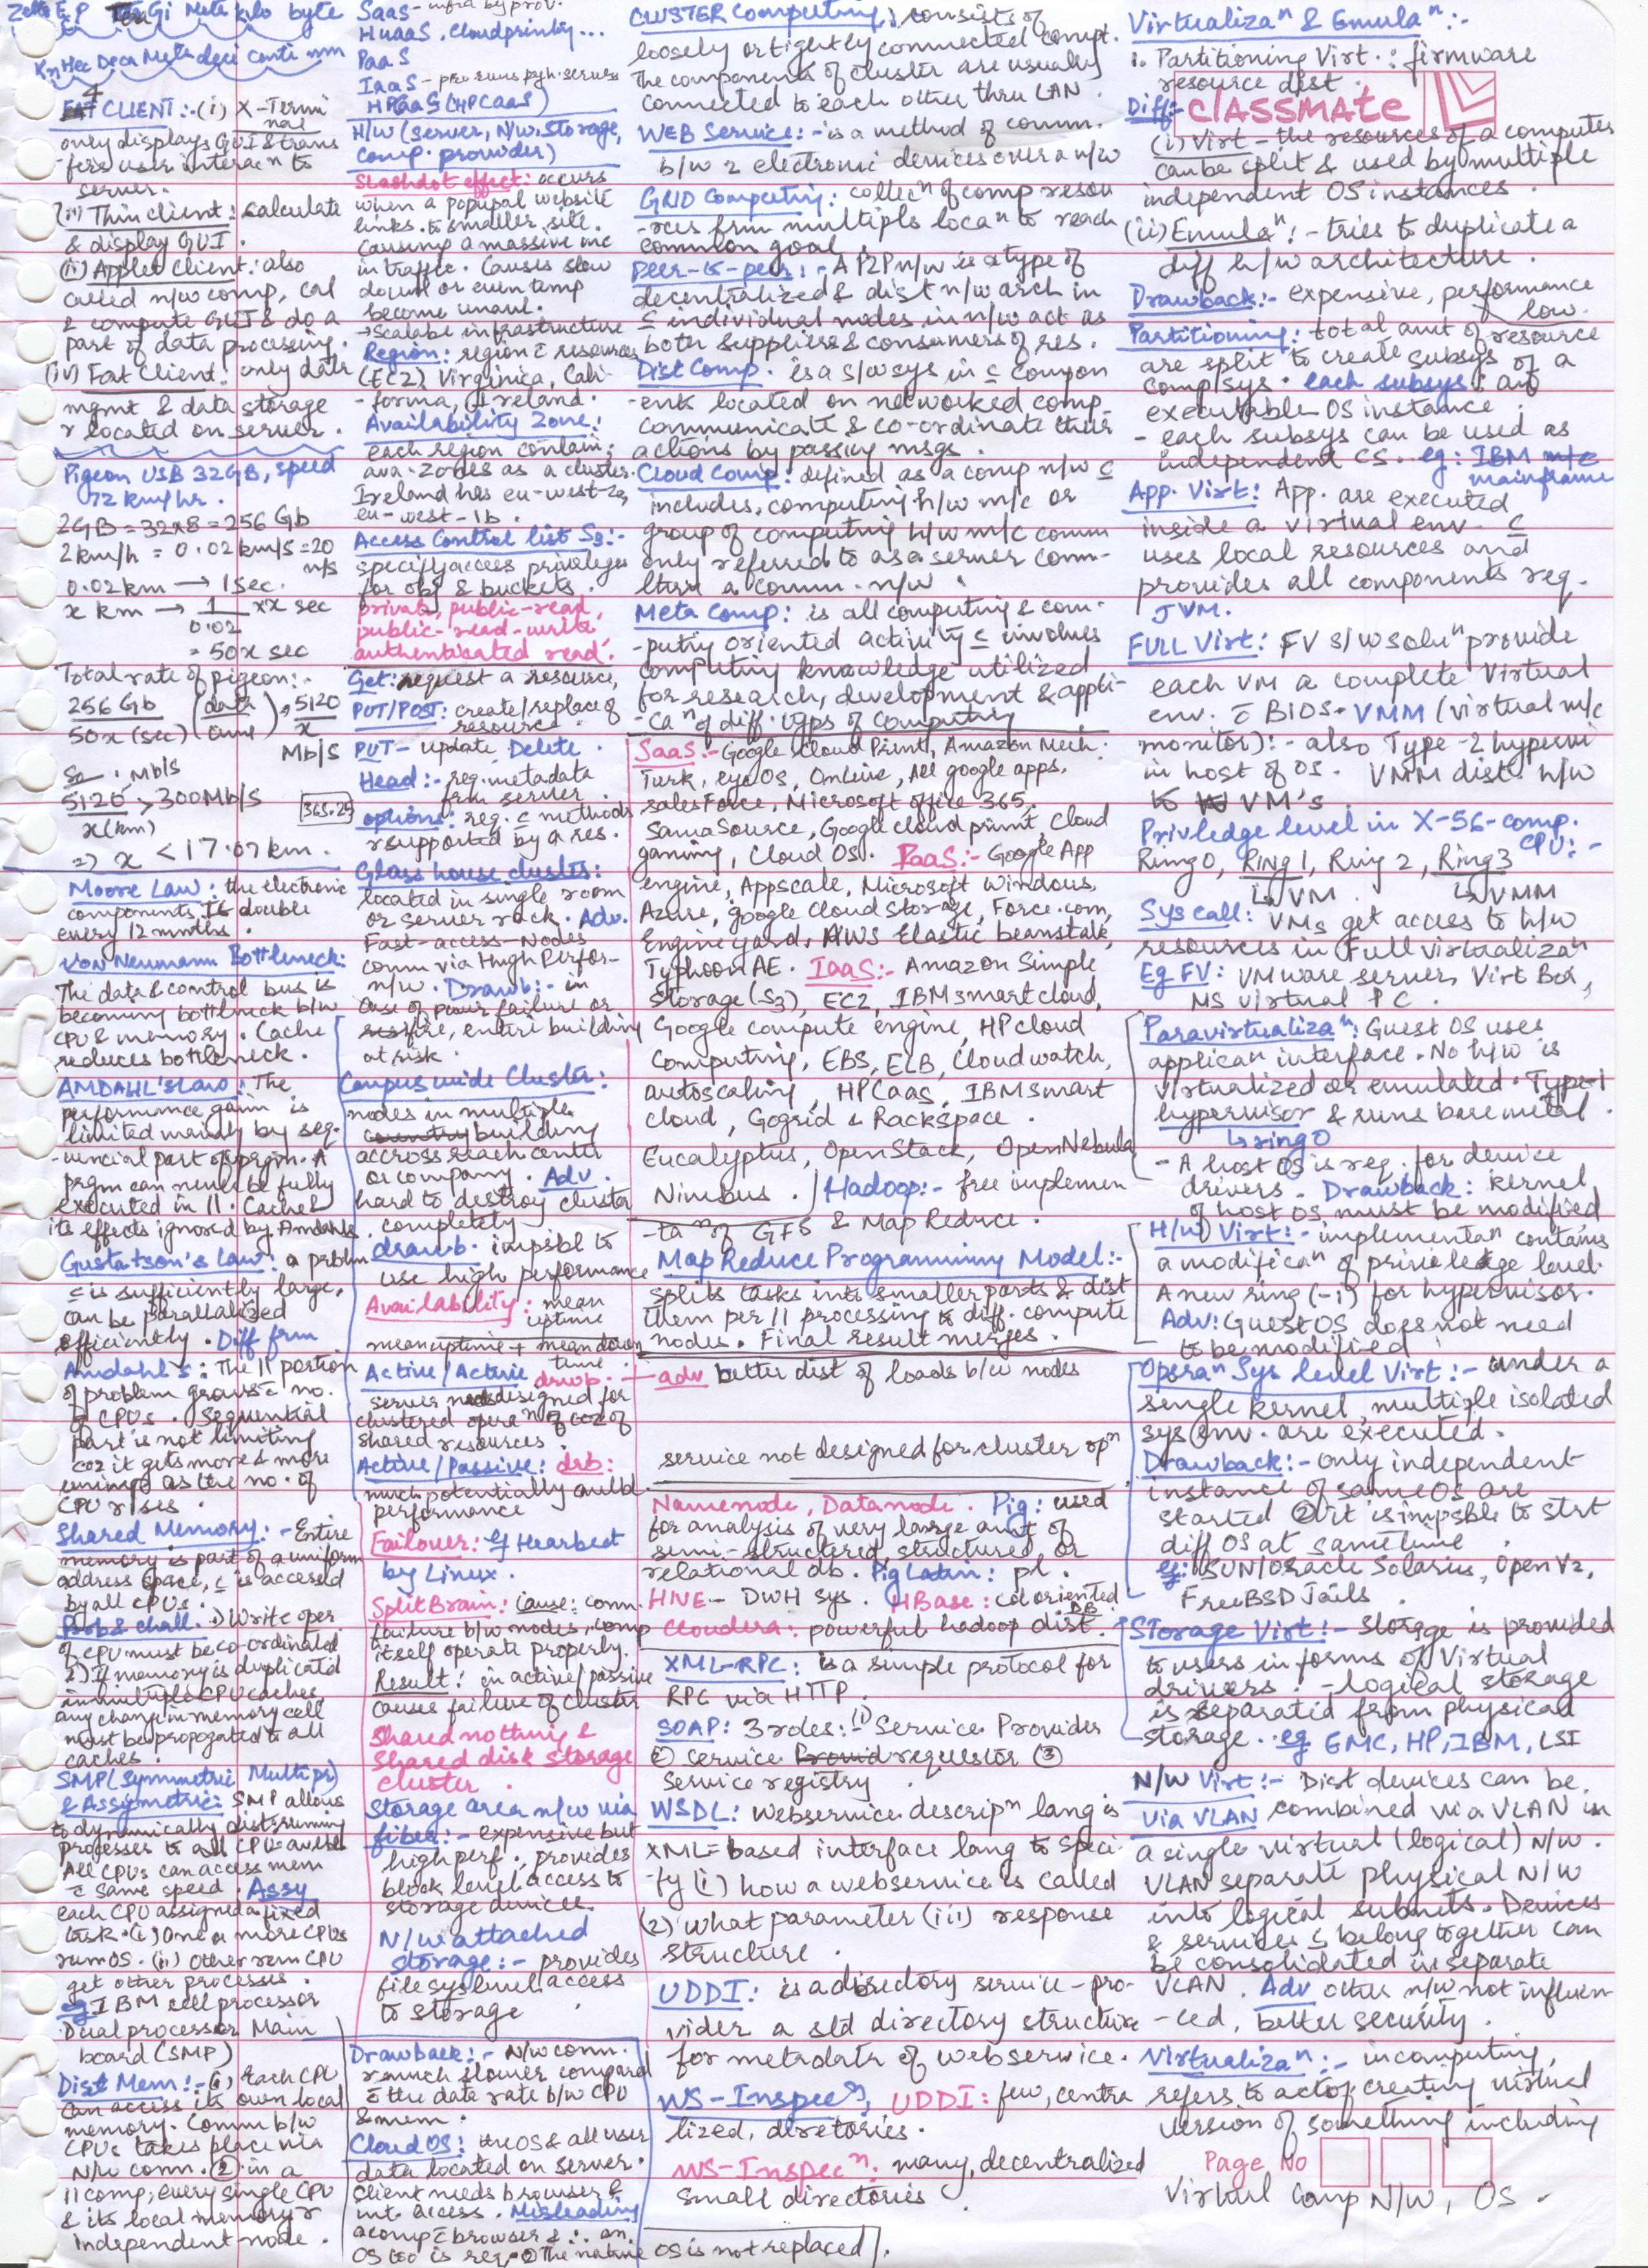 Zetta E P Tera Gi Meta kilo byte
K Hec Deca Meta deci centi mm
4
FAT CLIENT :- (i) X-Termi
nal
only displays GUI & trans
-fers user interacn to
server.
(ii) Thin client: calculate
& display GUI.
(ii) Applet Client: also
called n/w comp, cal
& compute GUI & do a
part of data processing.
(iv) Fat Client: only data
mgmt & data storage
r located on server.
Pigeon USB 32GB, speed
72 km/hr.
2GB = 32x8 = 256 Gb
2km/h = 0.02 km/s = 20
m/s
0.02 km → 1 sec.
x km → 1/0.02 x x sec
= 50x sec
Total rate of pigeon:-
256 Gb / 50x (sec) (data / time) , 5120 / x
Mb/s
So . Mb/s
5120 / x(km) > 300 Mb/s
=> x < 17.07 km.
365.25
Moore Law: the electronic
components IC double
every 12 months.
Von Neumann Bottleneck:
The data & control bus is
becoming bottleneck b/w
CPU & memory. Cache
reduces bottleneck.
AMDAHL's Law: The
performance gain is
limited mainly by seq-
-uencial part of prgm. A
prgm can never be fully
executed in ||. Cache &
its effects ignored by Amdahls
Gustafson's Law: a problm
c is sufficiently large,
can be parallalized
efficiently. Diff frm
Amdahl's: The || portion
of problem grows c no.
of CPUs. Sequential
part is not limiting
coz it gets more & more
unimp as the no. of
CPU rises.
Shared Memory:- Entire
memory is part of a uniform
address space, c is accessed
by all CPUs.
Prob & chall. 1) Write oper
of CPU must be co-ordinated
2) If memory is duplicated
in multiple CPU caches,
any change in memory cell
must be propogated to all
caches.
SMP (Symmetric Multi pr)
& Assymetric: SMP allows
to dynamically dist running
processes to all CPUs avlble
All CPUs can access mem
c same speed. Assy
each CPU assigned a fixed
task. (i) One or more CPUs
run OS. (ii) Other rem CPU
get other processes.
eg IBM cell processor
Dual processor Main
board (SMP)
Dist Mem:- (1) Each CPU
can access its own local
memory. Comm b/w
CPUs takes place via
N/w conn. (2) in a
|| comp, every single CPU
& its local memory r
independent node.
SaaS - infra by prov.
HuaaS, Cloudprinting...
PaaS
IaaS - pro runs phy. servers
HPCaaS (HPCaaS)
H/W (server, N/w, Storage,
comp. provider)
Slashdot effect: occurs
when a popupal website
links to smaller site.
causing a massive inc
in traffic. Causes slow
down or even temp
become unava.
→ Scalable infrastructure
Region: region c resources
(EC2) Virginica, Cali-
-forma, Ireland.
Availability Zone:
each region contain:
ava. zones as a cluster.
Ireland has eu-west-1a,
eu-west-1b.
Access Control list S3:-
specify access privileges
for obj & buckets.
private, public-read,
public-read-write,
authenticated read.
Get: request a resource,
PUT/POST: create/replace of
resource.
PUT - update, Delete.
Head:- req. metadata
frm server.
options: req. c methods
r supported by a res.
Glass house cluster:
located in single room
or server rack. Adv.
Fast-access-Nodes
comm via High Perfor-
n/w. Drawb:- in
case of power failure or
fire, entire building
at risk.
Campus wide Cluster:
nodes in multiple
building
accross reach center
or company. Adv.
hard to destroy cluster
completely
drawb. impsbl to
use high performance
Availability: mean
uptime
mean uptime + mean down
time
Active/Active drwb.
server nodes designed for
clustered operan of coz of
shared resources.
Active/Passive: drb:
much potentially avlbl
performance
Failover: eg Hearbeat
by Linux.
Split Brain: Cause: comm.
failure b/w nodes, comp
itself operate properly.
Result: in active/passive
causes failure of cluster
Shared nothing &
Shared disk storage
cluster.
Storage area n/w via
fiber:- expensive but
high perf., provides
block level access to
storage devices.
N/w attached
storage:- provides
file sys level access
to storage
Drawback:- N/w conn.
r much slower compared
c the data rate b/w CPU
& mem.
Cloud OS: the OS & all user
data located on server.
Client needs browser &
int. access. Misleading
a comp c browser & ∴ an
OS too is req. (2) The native OS is not replaced.
CLUSTER Computing: consists of
loosely or tightly connected compt.
The components of cluster are usually
connected to each other thru LAN.
WEB Service:- is a method of comm.
b/w 2 electronic devices over a n/w
GRID Computing: collecn of comp resou
-rces frm multiple locan to reach
common goal
Peer-to-peer:- A P2P n/w is a type of
decentralized & dist n/w arch in
c individual nodes in n/w act as
both suppliers & consumers of res.
Dist Comp. is a s/w sys in c compon
-ents located on networked comp.
communicate & co-ordinate their
actions by passing msgs.
Cloud Comp: defined as a comp n/w c
includes, computing h/w m/c or
group of computing h/w m/c comm
only referred to as a server comm-
thru a comm. n/w.
Meta Comp: is all computing & com-
-puting oriented activity c involves
computing knowledge utilized
for research, development & appli-
-can of diff. types of computing
SaaS:- Google Cloud Print, Amazon Mech.
Turk, eyeOS, OnLive, All google apps,
salesForce, Microsoft office 365,
SamaSource, Google cloud print, Cloud
gaming, Cloud OS. PaaS:- Google App
engine, Appscale, Microsoft Windows
Azure, google Cloud Storage, Force.com,
Engine yard, AWS Elastic beanstalk,
Typhoon AE. IaaS:- Amazon Simple
Storage (S3), EC2, IBM smart cloud,
Google compute engine, HP cloud
computing, EBS, ELB, Cloudwatch,
autoscaling, HPCaas, IBM smart
cloud, Gogrid & Rackspace.
Eucalyptus, OpenStack, OpenNebula
Nimbus. / Hadoop:- free implemen
-tan of GFS & Map Reduce.
Map Reduce Programming Model:-
splits tasks into smaller parts & dist
them per || processing to diff. compute
nodes. Final result merges.
adv better dist of loads b/w nodes
service not designed for cluster opn
Namenode, Datanode. Pig: used
for analysis of very large amt of
semi-structered, structured, or
relational db. Pig Latin: pl.
HIVE - DWH sys. HBase: col oriented
DB
Cloudera: powerful hadoop dist.
XML-RPC: is a simple protocol for
RPC via HTTP.
SOAP: 3 roles:- (1) Service Provider
(2) service requestor (3)
Service registry
WSDL: webservice descripn lang is
XML-based interface lang to speci-
-fy (i) how a webservice is called
(2) what parameter (iii) response
structure.
UDDI: is a directory service - pro-
vider a std directory structure
for metadata of webservice.
WS-Inspecn, UDDI: few, centra
lized, directories.
WS-Inspecn: many, decentralized
small directories
Virtualizan & Emulan:-
1. Partitioning Virt.: firmware
resource dist.
Diff:- CLASSMATE
(i) Virt - the resources of a computer
can be split & used by multiple
independent OS instances.
(ii) Emulan:- tries to duplicate a
diff h/w architecture.
Drawback:- expensive, performance
low.
Partitioning: total amt of resource
are split to create subsys of a
comp sys. each subsys: an
executable OS instance.
- each subsys can be used as
independent CS. eg: IBM
mainframe
App. Virt: App. are executed
inside a virtual env. c
uses local resources and
provides all components req.
JVM.
FULL Virt: FV s/w solun provide
each VM a complete Virtual
env. c BIOS. VMM (virtual m/c
monitor):- also Type-2 hypervi
in host of OS. VMM dist. h/w
to VM's
Priviledge level in X-56-comp.
CPU:-
Ring 0, Ring 1, Ring 2, Ring 3
↳ VM ↳ VMM
Sys call: VMs get access to h/w
resources in Full virtualizan
Eg FV: VMware server, Virt Box,
MS virtual PC.
Paravirtualizan: Guest OS uses
applican interface. No h/w is
virtualized or emulated. Type-1
hypervisor & runs bare metal.
↳ ring 0
- A host OS is req. for device
drivers. Drawback: kernel
of host OS must be modified
H/W Virt:- implementan contains
a modifican of priviledge level.
A new ring (-1) for hypervisor.
Adv: Guest OS does not need
to be modified
Operan Sys level Virt:- under a
single kernel, multiple isolated
sys env. are executed.
Drawback:- only independent
instance of same OS are
started (2) it is impsble to strt
diff OS at same time.
eg: SUN/Oracle Solarius, OpenVz,
FreeBSD Jails.
Storage Virt:- storage is provided
to users in forms of Virtual
drivers. - logical storage
is separated from physical
storage. eg EMC, HP, IBM, LSI
N/W Virt:- Dist devices can be
Via VLAN combined via VLAN in
a single virtual (logical) N/w.
VLAN separate physical N/w
into logical subnets. Devices
& services c belong together can
be consolidated in separate
VLAN. Adv other n/w not influen
-ced, better security.
Virtualizan:- in computing,
refers to act of creating virtual
version of something including
Page No
Virtual Comp N/W, OS.